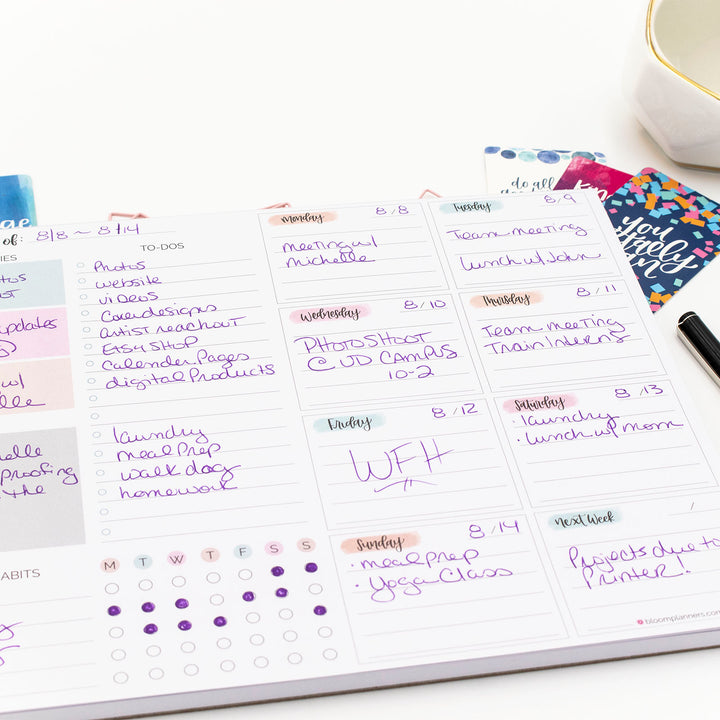 do all
You
of: 8/8 ~ 8/14
TO-DOS
Photos
website
videos
Coverdesigns
artist reachout
Etsy SHOP
Calender Pages
digital Products
laundry
meal Prep
walk dog
homework
updates
w/
elle
elle
proofing
the
ABITS
M T W T F S S
Monday 8/8
meeting w/
michelle
Tuesday 8/9
Team meeting
Lunch w/ John
Wednesday 8/10
PHOTOSHOOT
@ UD CAMPUS
10-2
Thursday 8/11
Team meeting
Train Interns
Friday 8/12
WFH
Saturday 8/13
· laundry
· Lunch w/ mom
Sunday 8/14
· meal prep
· Yoga Class
Next Week /
Projects due to
Printer!
bloomplanners.com